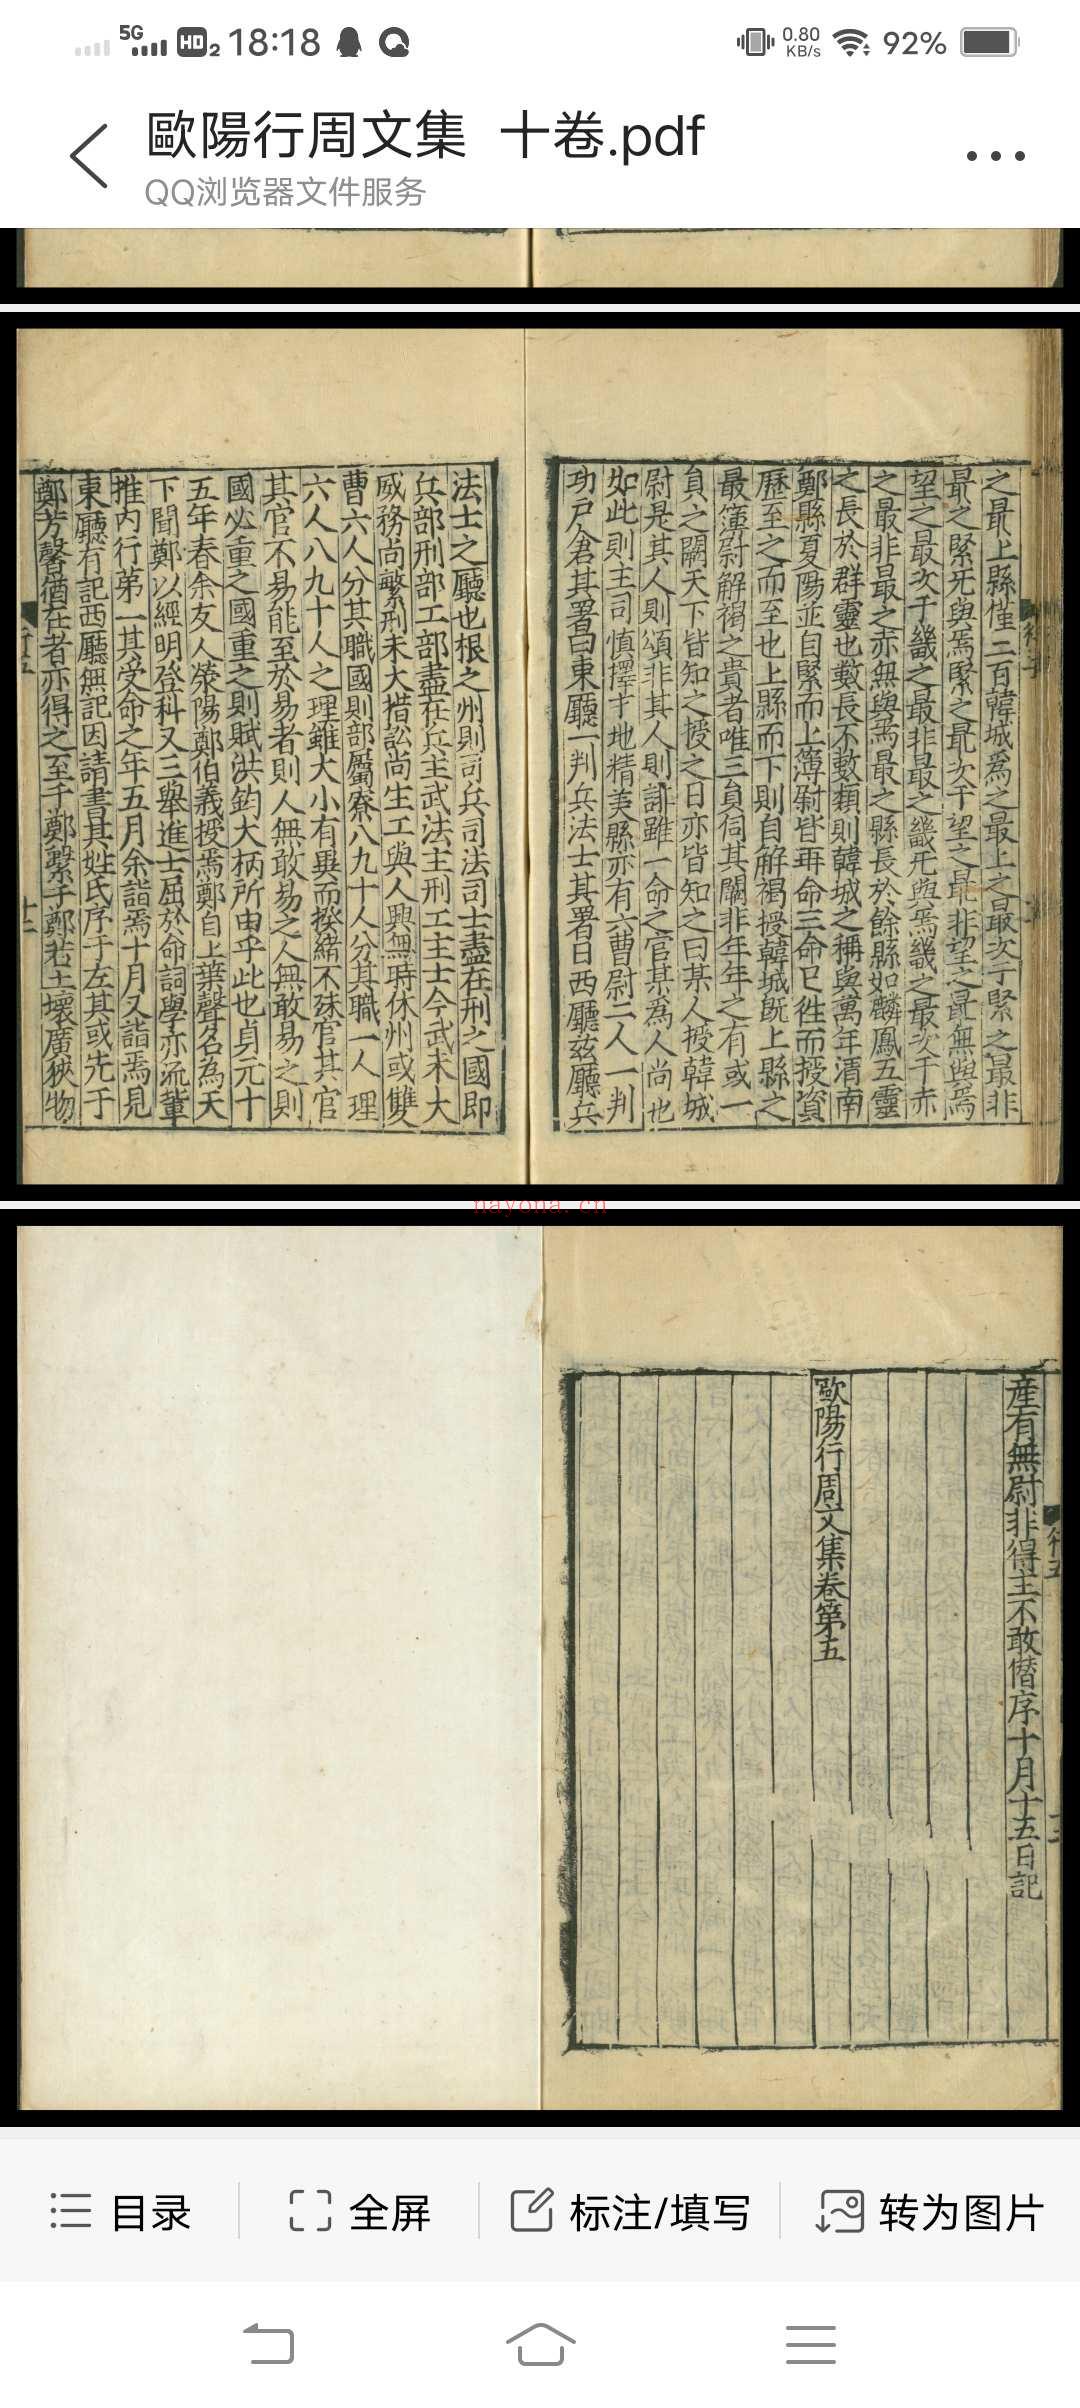 5G
HD 2
18:18
0.80 KB/s
92%
歐陽行周文集 十卷.pdf
QQ浏览器文件服务
之最上縣僅二百韓城爲之最上之最次于緊之最非
最之緊無與焉緊之最次于望之最非望之最無與焉
望之最次于畿之最非最之畿無與焉畿之最次于赤
之最非最之赤無與焉最之縣長於餘縣如麟鳳五靈
之長於群靈也數長不數類則韓城之稱與萬年渭南
鄭縣夏陽並自緊而上簿尉皆再命三命已徃而授資
歷至之而至也上縣而下則自解褐授韓城旣上縣之
最簿尉解褐之貴者唯三員伺其闕非年年之有或一
負之闕天下皆知之授之日亦皆知之曰某人授韓城
尉是其人則頌非其人則誹雖一命之官某爲人尚也
如此則主司慎擇才地精美縣亦有六曹尉二人一判
功戶倉其署曰東廳一判兵法士其署曰西廳茲廳兵
法士之廳也根之州則司兵司法司士盡在刑之國即
兵部刑部工部盡在兵主武法主刑工主士今武未大
威務尚繁刑未大措訟尚生工與人興無時休州或雙
曹六人分其職國則部屬寮八九十人分其職一人理
六人八九十人之理雖大小有異而揆緒不殊官其官
其官不易能至於易者則人無敢易之人無敢易之則
國必重之國重之則賦洪鈞大柄所由乎此也貞元十
五年春余友人滎陽鄭伯義授焉鄭自上葉聲名為天
下聞鄭以經明登科又三舉進士屈於命詞學亦流輩
推內行弟一其受命之年五月余詣焉十月又詣焉見
東廳有記西廳無記因請書其姓氏序于左其或先于
鄭芳馨猶在者亦得之至于鄭繫于鄭若土壤廣狹物
nayona.cn
産有無尉非得主不敢僣序十月十五日記
歐陽行周文集卷第五
目录
全屏
标注/填写
转为图片